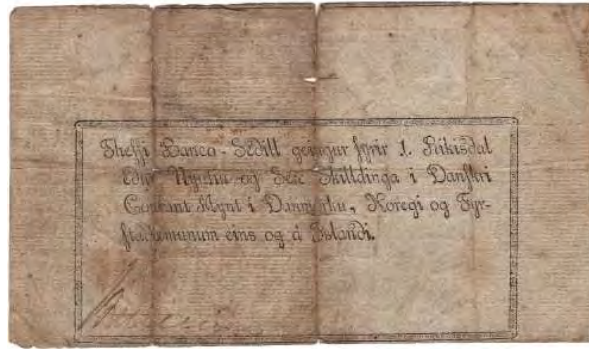 Thessi Banco-Sedill gengur fyrir 1. Rikisdal
edur og Sex Skilldinga i Danskri
Courant Mynt i Danmørku, Noregi og Fyr-
eins og á Islandi.